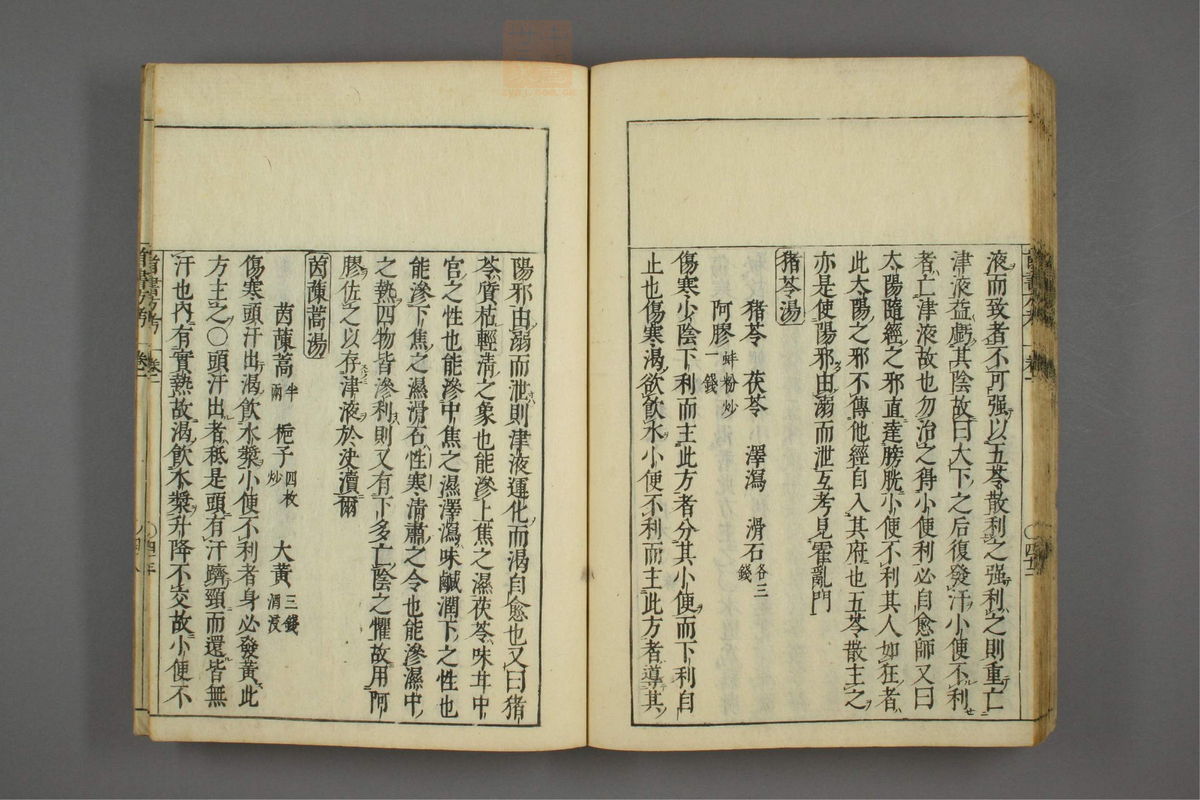 液而致者不可强以五苓散利之强利之則重亡
津液益虧其陰故曰大下之后復發汗小便不利
者亡津液故也勿治之得小便利必自愈師又曰
太陽隨經之邪直達膀胱小便不利其人如狂者
此太陽之邪不傳他經自入其府也五苓散主之
亦是使陽邪由溺而泄互考見霍亂門
猪苓湯
猪苓 茯苓 澤瀉 滑石各三錢
阿膠蚌粉炒一錢
傷寒少陰下利而主此方者分其小便而下利自
止也傷寒渴欲飲水小便不利而主此方者導其
陽邪由溺而泄則津液運化而渴自愈也又曰猪
苓質枯輕淸之象也能滲上焦之濕茯苓味甘中
官之性也能滲中焦之濕澤瀉味鹹潤下之性也
能滲下焦之濕滑石性寒淸肅之令也能滲濕中
之熱四物皆滲利則又有下多亡陰之懼故用阿
膠佐之以存津液於决瀆爾
茵蔯蒿湯
茵蔯蒿半兩 梔子四枚炒 大黃三錢酒浸
傷寒頭汗出渴飲水漿小便不利者身必發黃此
方主之○頭汗出者秪是頭有汗臍頸而還皆無
汗也內有實熱故渴飲水漿升降不交故小便不